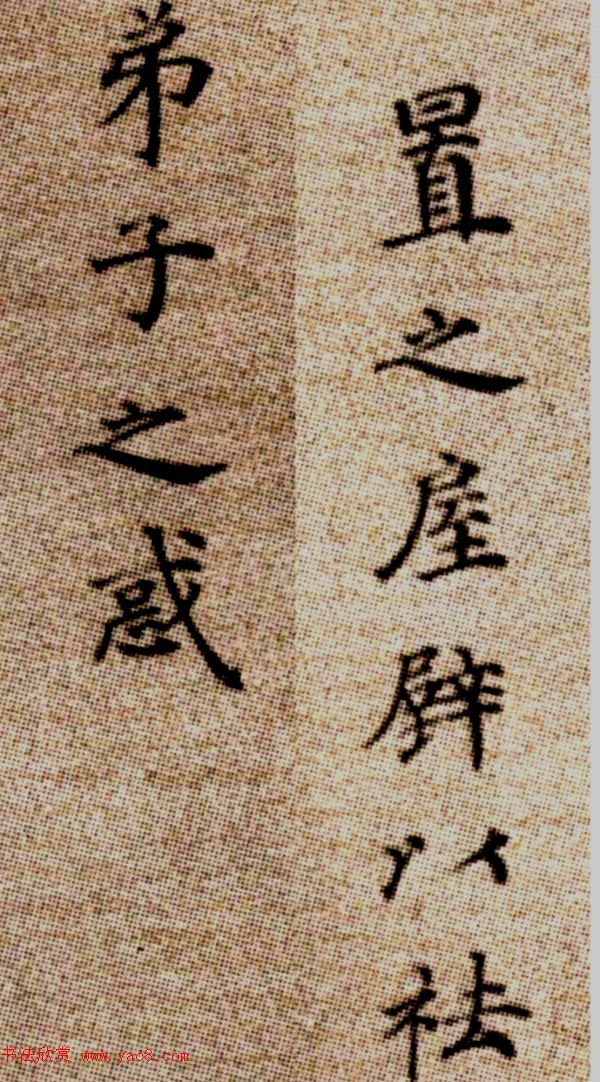 置之屋壁以祛
弟子之惑
书法欣赏 www.yac8.com